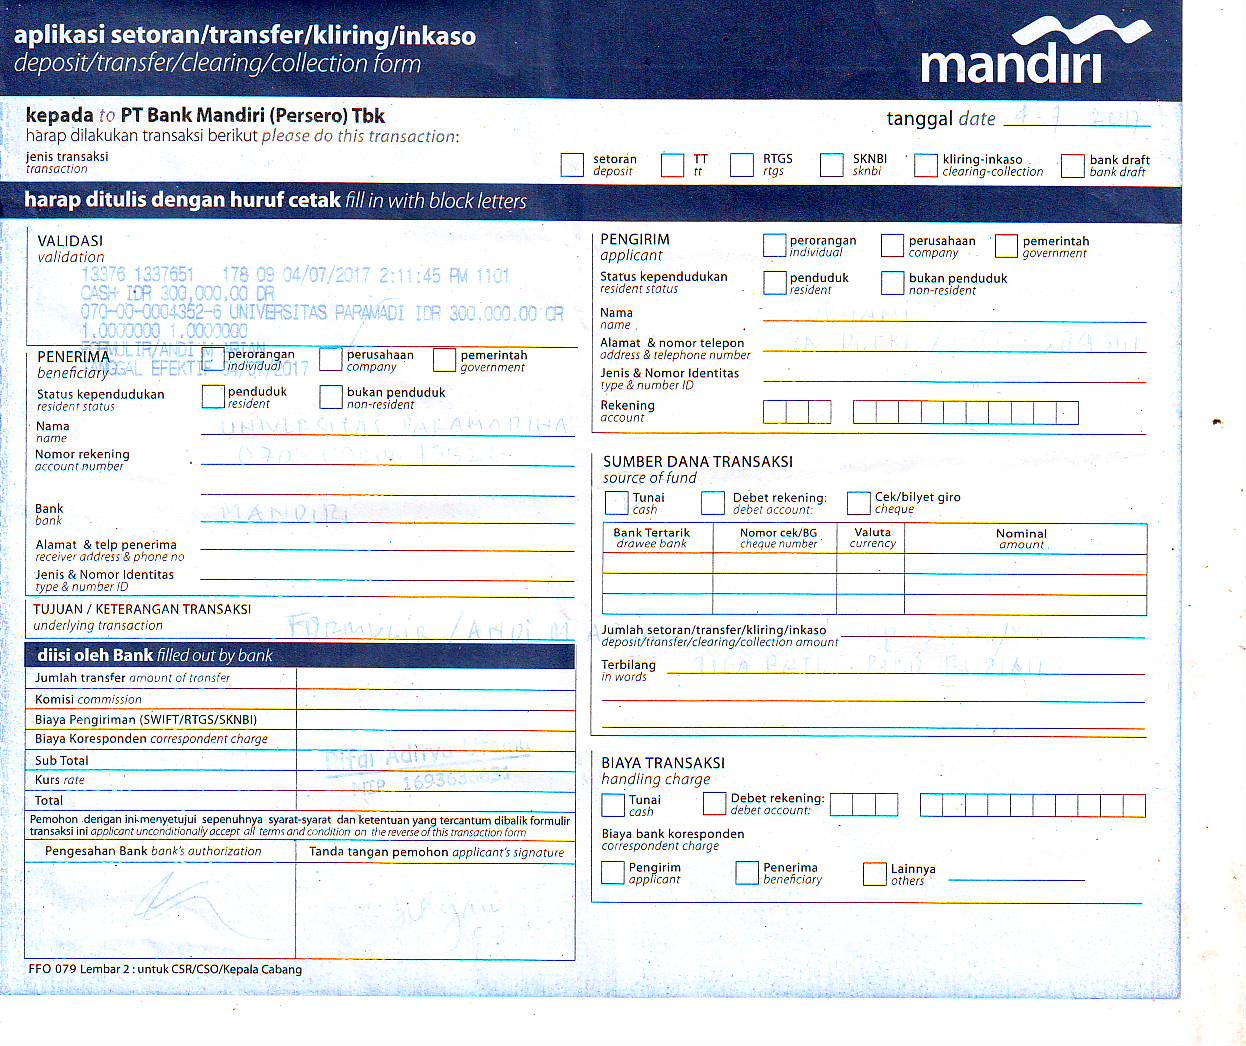 aplikasi setoran/transfer/kliring/inkaso
deposit/transfer/clearing/collection form
mandırı
kepada to PT Bank Mandiri (Persero) Tbk
harap dilakukan transaksi berikut please do this transaction:
tanggal date 4-7 2017
jenis transaksi
transaction
setoran
deposit
TT
tt
RTGS
rtgs
SKNBI
sknbi
kliring-inkaso
clearing-collection
bank draft
bank draft
harap ditulis dengan huruf cetak fill in with block letters
VALIDASI
validation
13376 1337651 178 09 04/07/2017 2:11:45 PM 1101
CASH IDR 300,000.00 DR
070-00-0004352-6 UNIVERSITAS PARAMADI IDR 300,000.00 CR
1.0000000 1.0000000
FORMULIR/ANDI
TANGGAL EFEKTIF 04/07/2017
PENERIMA
beneficiary
perorangan
individual
perusahaan
company
pemerintah
government
Status kependudukan
resident status
penduduk
resident
bukan penduduk
non-resident
Nama
name
UNIVERSITAS PARAMADINA
Nomor rekening
account number
Bank
bank
MANDIRI
Alamat & telp penerima
receiver address & phone no
Jenis & Nomor Identitas
type & number ID
TUJUAN / KETERANGAN TRANSAKSI
underlying transaction
FORMULIR / ANDI M
diisi oleh Bank filled out by bank
Jumlah transfer amount of transfer
Komisi commission
Biaya Pengiriman (SWIFT/RTGS/SKNBI)
Biaya Koresponden correspondent charge
Sub Total
Kurs rate
Total
Rifqi Aditya
NIP 1693636631
Pemohon dengan ini menyetujui sepenuhnya syarat-syarat dan ketentuan yang tercantum dibalik formulir
transaksi ini applicant unconditionally accept all terms and condition on the reverse of this transaction form
Pengesahan Bank bank's authorization
Tanda tangan pemohon applicant's signature
FFO 079 Lembar 2 : untuk CSR/CSO/Kepala Cabang
PENGIRIM
applicant
perorangan
individual
perusahaan
company
pemerintah
government
Status kependudukan
resident status
penduduk
resident
bukan penduduk
non-resident
Nama
name
Alamat & nomor telepon
address & telephone number
Jenis & Nomor Identitas
type & number ID
Rekening
account
SUMBER DANA TRANSAKSI
source of fund
Tunai
cash
Debet rekening:
debet account:
Cek/bilyet giro
cheque
Bank Tertarik
drawee bank
Nomor cek/BG
cheque number
Valuta
currency
Nominal
amount
Jumlah setoran/transfer/kliring/inkaso
deposit/transfer/clearing/collection amount
Terbilang
in words
TIGA RATUS RIBU RUPIAH
BIAYA TRANSAKSI
handling charge
Tunai
cash
Debet rekening:
debet account:
Biaya bank koresponden
correspondent charge
Pengirim
applicant
Penerima
beneficiary
Lainnya
others